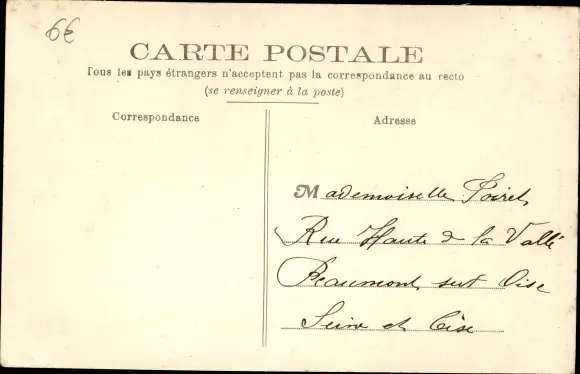 6€
CARTE POSTALE
Tous les pays étrangers n'acceptent pas la correspondance au recto
(se renseigner à la poste)
Correspondance
Adresse
Mademoiselle Poiret
Rue Haute de la Vallé
Beaumont sur Oise
Seine et Oise